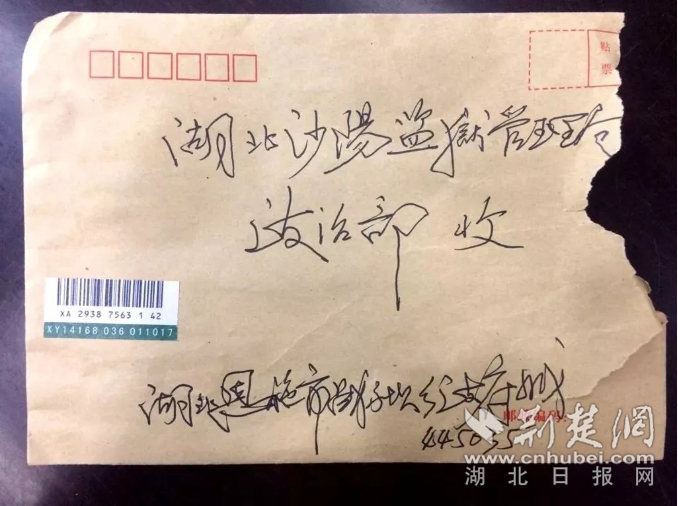 贴
票
湖北沙陽监獄管理局
政治部 收
XA 2938 7563 1 42
XY14168 036 011017
湖北恩施市
邮政编码
445035
荆楚網
www.cnhubei.com
湖北日报网